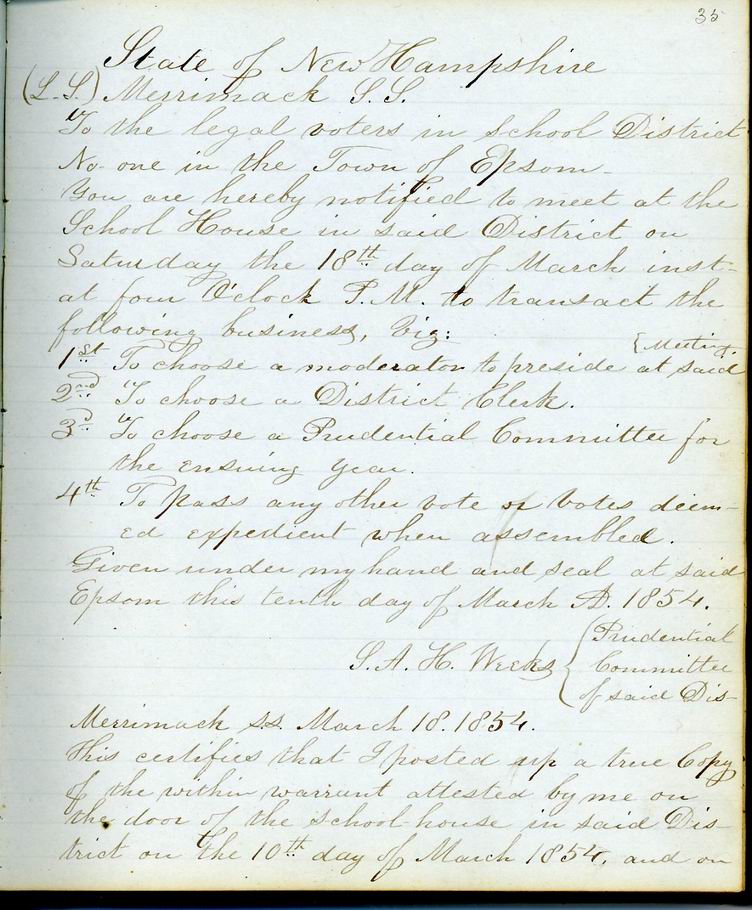 35
State of New Hampshire
(L.S.) Merrimack S.S.
To the legal voters in School District
No- one in the Town of Epsom-
You are hereby notified to meet at the
School House in said District on
Saturday the 18th day of March inst-
at four O'clock P.M. to transact the
following business, Viz:
{Meeting.
1st To choose a moderator to preside at said
2nd To choose a District Clerk.
3d To choose a Prudential Committee for
the ensuing year.
4th To pass any other vote or votes deem-
ed expedient when assembled.
Given under my hand and seal at said
Epsom this tenth day of March A.D. 1854.
S.A.H. Weeks { Prudential
Committee
of said Dis-
Merrimack S.S. March 18. 1854.
This certifies that I posted up a true Copy
of the within warrant attested by me on
the door of the school-house in said Dis-
trict on the 10th day of March 1854, and on